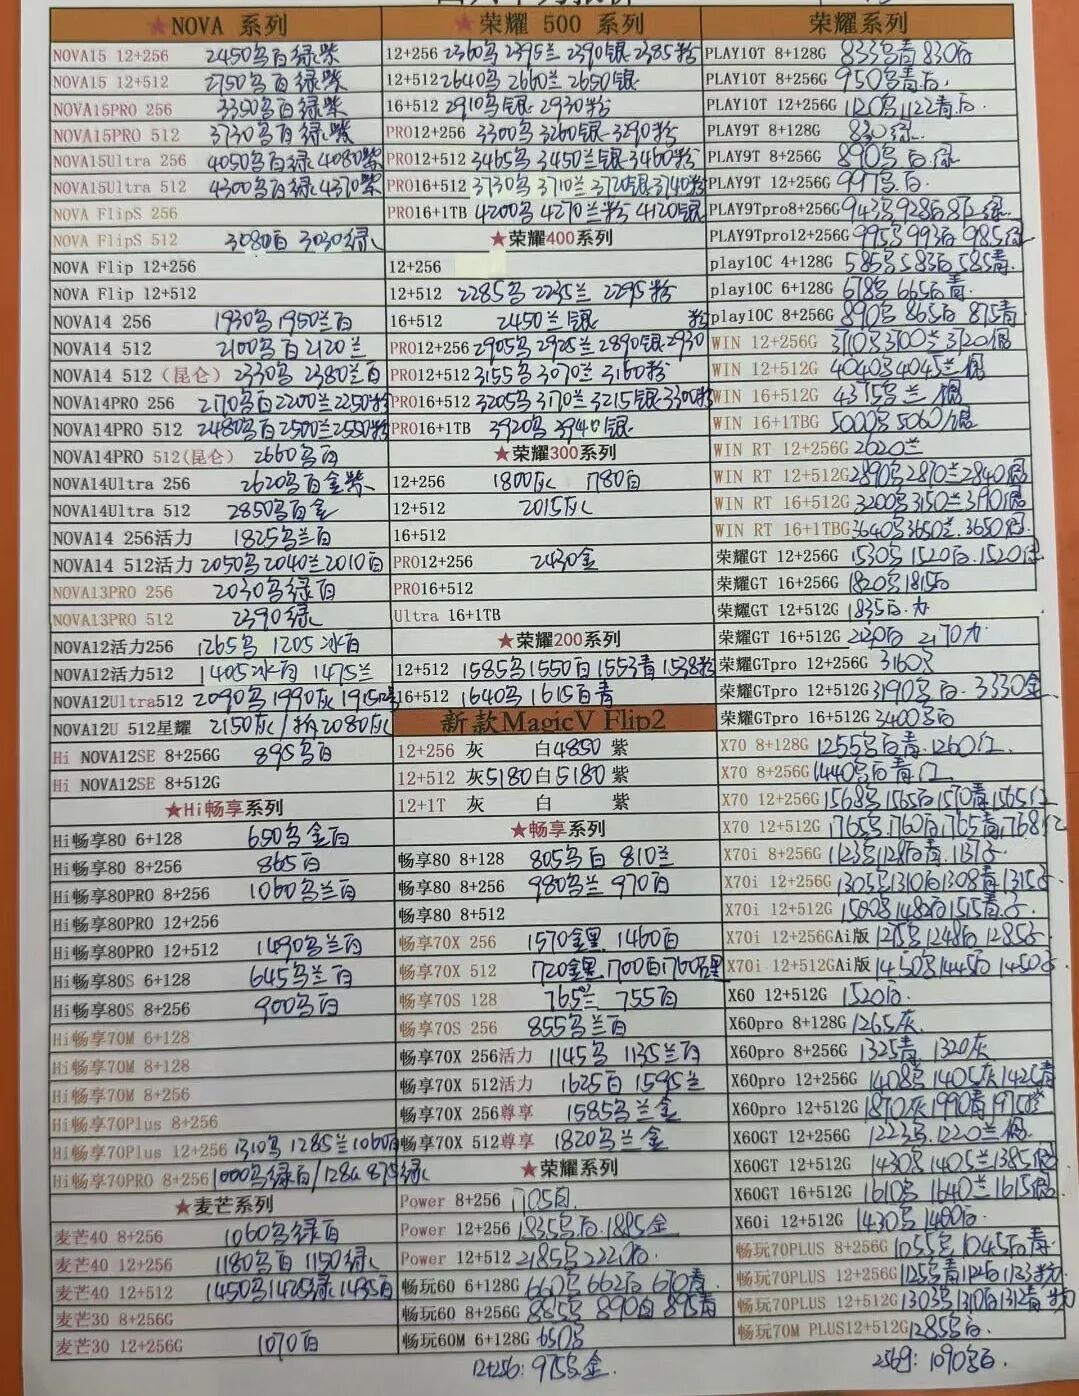 ★NOVA 系列
NOVA15 12+256 2450乌白绿紫
NOVA15 12+512 2750乌白绿紫
NOVA15PRO 256 3350乌白绿紫
NOVA15PRO 512 3730乌白绿紫
NOVA15Ultra 256 4050乌白绿 4080紫
NOVA15Ultra 512 4300乌白绿 4370紫
NOVA FlipS 256
NOVA FlipS 512 3080白 3030绿
NOVA Flip 12+256
NOVA Flip 12+512
NOVA14 256 1930乌 1950兰白
NOVA14 512 2100乌白 2120兰
NOVA14 512(昆仑) 2330乌 2380兰白
NOVA14PRO 256 2170乌白 2200兰 2250粉
NOVA14PRO 512 2480乌白 2500兰 2550粉
NOVA14PRO 512(昆仑) 2660乌白
NOVA14Ultra 256 2620乌白金紫
NOVA14Ultra 512 2850乌白金
NOVA14 256活力 1825乌兰白
NOVA14 512活力 2050乌 2040兰 2010白
NOVA13PRO 256 2030乌绿白
NOVA13PRO 512 2390绿
NOVA12活力256 1265乌 1205冰白
NOVA12活力512 1405冰白 1475兰
NOVA12Ultra512 2090乌 1990灰
NOVA12U 512星耀 2150灰/ 2080灰
Hi NOVA12SE 8+256G 895乌白
Hi NOVA12SE 8+512G
★Hi畅享系列
Hi畅享80 6+128 650乌金白
Hi畅享80 8+256 865白
Hi畅享80PRO 8+256 1060乌兰白
Hi畅享80PRO 12+256
Hi畅享80PRO 12+512 1490乌兰白
Hi畅享80S 6+128 645乌兰白
Hi畅享80S 8+256 900乌白
Hi畅享70M 6+128
Hi畅享70M 8+128
Hi畅享70M 8+256
Hi畅享70Plus 8+256
Hi畅享70Plus 12+256 1310乌 1285兰 1060白
Hi畅享70PRO 8+256 1000乌绿白/128G 875绿
★麦芒系列
麦芒40 8+256 1060乌绿白
麦芒40 12+256 1180乌白 1150绿
麦芒40 12+512 1450乌 1425绿 1435白
麦芒30 8+256G
麦芒30 12+256G 1070白
★荣耀 500 系列
12+256 2360乌 2395兰 2390银 2385粉
12+512 2640乌 2660兰 2650银
16+512 2910乌银 2930粉
PRO12+256 3300乌 3260银 3290粉
PRO12+512 3465乌 3450兰银 3460粉
PRO16+512 3730乌 3710兰 3720银 3740粉
PRO16+1TB 4200乌 4270兰粉 4120银
★荣耀400系列
12+256
12+512 2285乌 2235兰 2295粉
16+512 2450兰银
PRO12+256 2905乌 2925兰 2890银 2930粉
PRO12+512 3155乌 3070兰 3160粉
PRO16+512 3205乌 3170兰 3215银 3300粉
PRO16+1TB 3920乌 3940银
★荣耀300系列
12+256 1800灰 1780白
12+512 2015灰
16+512
PRO12+256 2430金
PRO16+512
Ultra 16+1TB
★荣耀200系列
12+512 1585乌 1550白 1553青 1538粉
16+512 1640乌 1615白青
新款MagicV Flip2
12+256 灰 白4850 紫
12+512 灰5180 白5180 紫
12+1T 灰 白 紫
★畅享系列
畅享80 8+128 805乌白 810兰
畅享80 8+256 980乌兰 970白
畅享80 8+512
畅享70X 256 1570金黑 1460白
畅享70X 512 1720金黑 1700白
畅享70S 128 765兰 755白
畅享70S 256 855乌兰白
畅享70X 256活力 1145乌 1135兰白
畅享70X 512活力 1625白 1595兰
畅享70X 256尊享 1585乌兰金
畅享70X 512尊享 1820乌兰金
★荣耀系列
Power 8+256 1705白
Power 12+256 1835乌白 1885金
Power 12+512 2185乌 2220白
畅玩60 6+128G 660乌 662白 670青
畅玩60 8+256G 885乌 890白 895青
畅玩60M 6+128G 650乌
12+256: 975乌金.
荣耀系列
PLAY10T 8+128G 833乌青 830白
PLAY10T 8+256G 950乌青白
PLAY10T 12+256G 1120乌 1122青白
PLAY9T 8+128G 830绿
PLAY9T 8+256G 890乌白绿
PLAY9T 12+256G 997乌白
PLAY9Tpro8+256G 943乌 928白
PLAY9Tpro12+256G 995乌 993白
play10C 4+128G 585乌 583白 585青
play10C 6+128G 678乌 665白青
play10C 8+256G 890乌 865白 875青
WIN 12+256G 3710乌 3700兰 3720
WIN 12+512G 4040乌 4045兰
WIN 16+512G 4375乌兰
WIN 16+1TBG 5000乌 5060
WIN RT 12+256G 2620兰
WIN RT 12+512G 2890乌 2870兰 2840
WIN RT 16+512G 3200乌 3150兰 3190
WIN RT 16+1TBG 3640乌 3650兰 3650
荣耀GT 12+256G 1530乌 1520白 1520
荣耀GT 16+256G 1820乌 1815白
荣耀GT 12+512G 1835白
荣耀GT 16+512G 2170
荣耀GTpro 12+256G 3160乌
荣耀GTpro 12+512G 3190乌白 3330金
荣耀GTpro 16+512G 3400乌白
X70 8+128G 1255乌白青 1260红
X70 8+256G 1440乌白青红
X70 12+256G 1568乌 1565白 1570青 1565红
X70 12+512G 1765乌 1760白 1765青 1768红
X70i 8+256G 1123乌 1128白青
X70i 12+256G 1305乌 1310白 1308青 1315
X70i 12+512G 1515青
X70i 12+256GAi版 1248白 1285
X70i 12+512GAi版 1450乌 1445白 1450
X60 12+512G 1520白
X60pro 8+128G 1265灰
X60pro 8+256G 1325青 1320灰
X60pro 12+256G 1408乌 1405灰 1425青
X60pro 12+512G 1870灰 1990青
X60GT 12+256G 1223乌 1220兰
X60GT 12+512G 1430乌 1405兰 1385
X60GT 16+512G 1610乌 1640兰 1615
X60i 12+512G 1430乌 1400白
畅玩70PLUS 8+256G 1055乌 1045白青
畅玩70PLUS 12+256G 1125乌青 1133粉
畅玩70PLUS 12+512G 1303乌 1310白 1312青
畅玩70M PLUS12+512G 1285乌白
256G: 1090乌白.